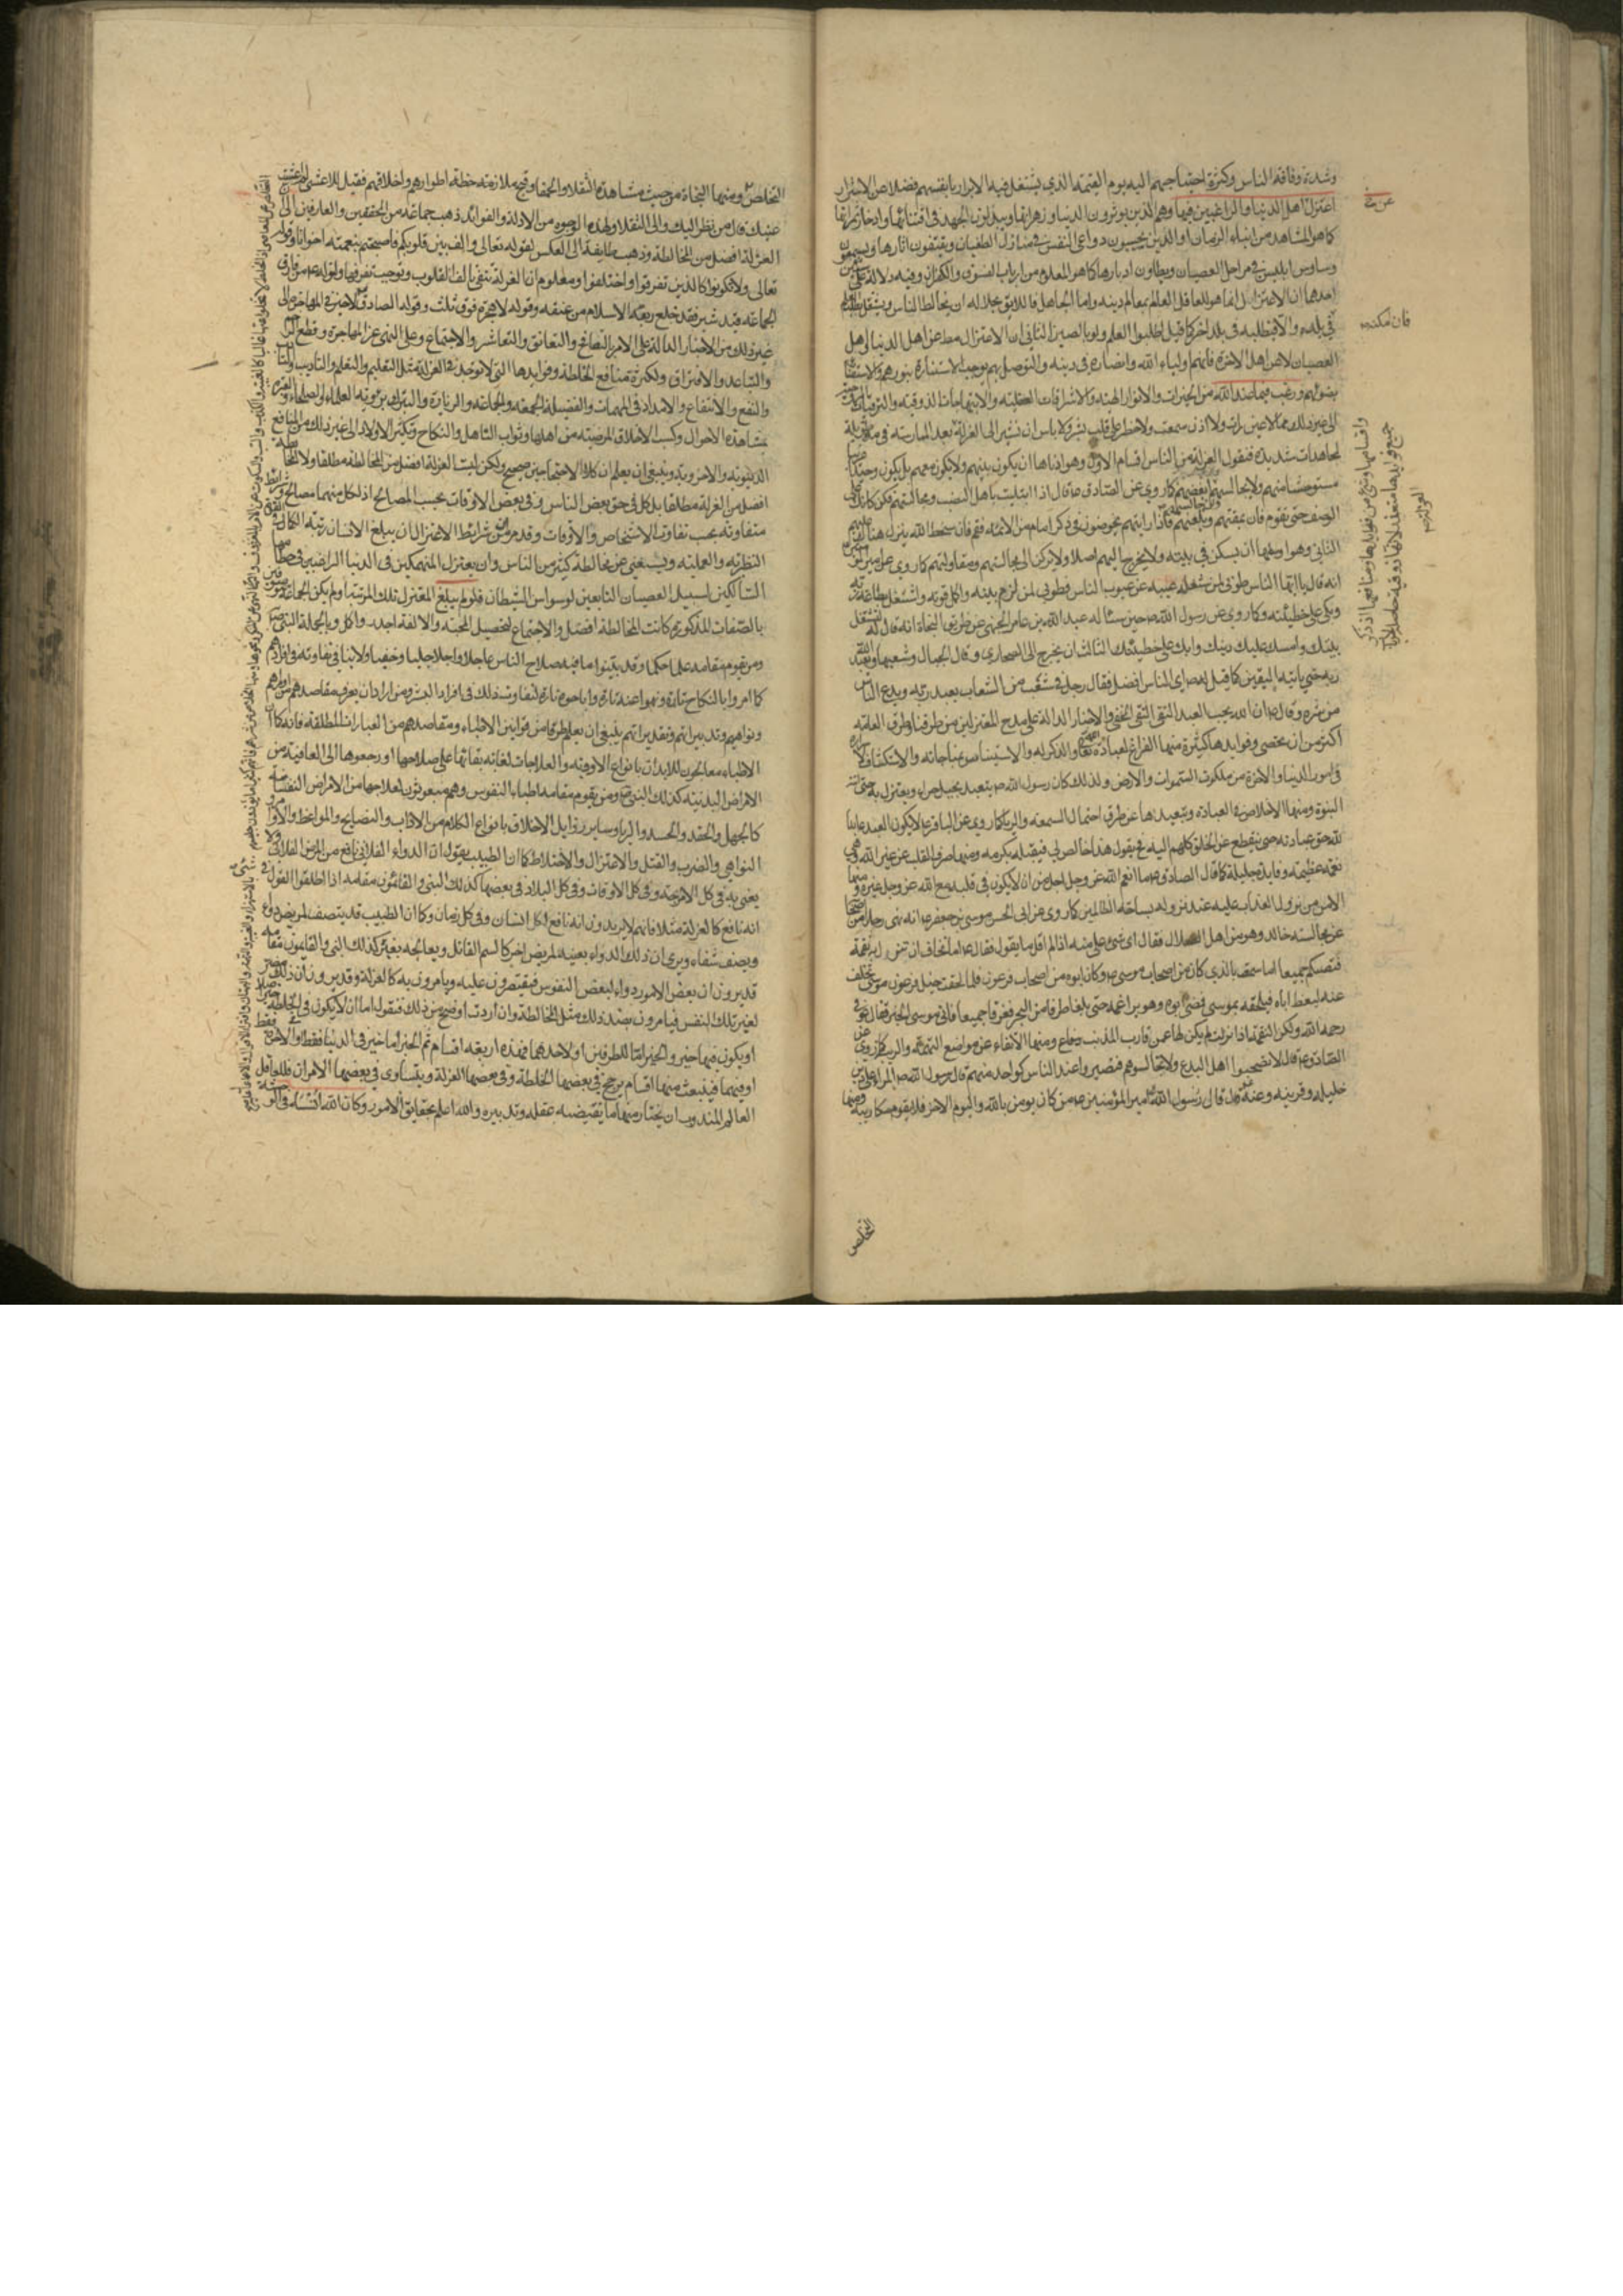 وشدة وفاقة الناس وكثرة احتياجهم اليه يوم القيمة الذي يشتغل فيه الابرار بانفسهم فضلا من الاشرار
اعتزل اهل الدنيا والراغبين فيها وهم الذين يوثرون الدنيا وزهراتها ويبذلون الجهد في اقتنائها وادخار ثمراتها
كما هو المشاهد من ابناء الزمان او الذين يجيبون دواعي النفس في منازل الطغيان ويقتفون اثارها ويسمعون
وساوس ابليس في مراحل العصيان ويطاون ادبارها كما هو المعلوم من ارباب الفسوق والكفران وفيه دلالة على
احدهما ان الاعتزال انما هو للعاقل العالم بمعالم دينه واما الجاهل فاللايق بحاله ان يخالط الناس ويشتغل بطلب العلم
في بلده والا فيطلبه في بلد اخر كما قيل اطلبوا العلم ولو بالصين الثاني ان الاعتزال مط عن اهل الدنيا واهل
العصيان لا عن اهل الاخرة فانهم اولياء الله وانصاره في دينه والتوصل بهم يوجب الاستنارة بنورهم والاستضائة
بضوئهم ورغب فيما عند الله من الخيرات والانوار الالهية والاشراقات العقلية والابتهاجات الذوقية
الى غير ذلك مما لا عين رات ولا اذن سمعت ولا خطر على قلب بشر ولا باس ان نشير الى العزلة بعد الممارسة في
لمجاهدات شديدة فنقول العزلة من الناس اقسام الاول وهو ادناها ان يكون بينهم ولا يكون معهم بل يكون وحيدا
مستوحشا منهم ولا يجالسهم كما روي عن الصادق ع قال اذا ابتليت باهل النصب ومجالستهم فكن كانك على
الرضف حتى تقوم فان الله يمقتهم ويلعنهم فاذا رايتهم يخوضون في ذكر امام من الائمة فقم فان سخط الله ينزل هناك عليهم
الثاني وهو اوسطها ان يسكن في بيته ولا يخرج اليهم اصلا ولا يركن الى مجالستهم ومقاولتهم كما روي عن امير المؤمنين
انه قال يا ايها الناس طوبى لمن شغله عيبه عن عيوب الناس وطوبى لمن لزم بيته واكل قوته واشتغل بطاعة ربه
وبكى على خطيئته وكما روي عن رسول الله ص حين ساله عبد الله بن عامر الجهني عن طريق النجاة انه قال له
بيتك وامسك عليك دينك وابك على خطيئتك الثالث ان يخرج الى الصحاري وقلل الجبال وشعبها ويعبد الله
ربه حتى ياتيه اليقين كما قيل له ص اي الناس افضل فقال رجل في شعب من الشعاب يعبد ربه ويدع الناس
من شره وقال ص ان الله يحب العبد التقي النقي الخفي والاخبار الدالة على مدح المعتزلين من طرقنا وطرق العامة
اكثر من ان تحصى وفوايدها كثيرة منها الفراغ لعبادة الله تعالى والذكر له والاستيناس بمناجاته والاستكشاف
في امور الدنيا والاخرة من ملكوت السموات والارض ولذلك كان رسول الله ص يتعبد بجبل حراء ويعتزل به حتى
النبوة ومنها الاخلاص في العبادة وتبعيدها عن طرق احتمال السمعة والريا كما روي عن الباقر ع لا يكون العبد عابدا
لله حق عبادته حتى ينقطع عن الخلق كلهم اليه فح يقول هذا خالص لي فيقبله بكرمه ومنها صرف القلب عن غير الله وهي
نعمة عظيمة وفايدة جليلة كما قال الصادق ع ما انعم الله عز وجل اجل من ان لا يكون في قلبه مع الله عز وجل غيره ومنها
الامن من نزول العذاب عليه عند نزوله بساحة الظالمين كما روي عن ابي الحسن موسى بن جعفر ع انه نهى رجلا من
عن مجالسة خاله وهو من اهل الضلال فقال اي شيء علي منه اذا لم اقل ما يقول فقال ع اما تخاف ان تنزل به نقمة
فتصيبكم جميعا اما سمعت بالذي كان من اصحاب موسى ع وكان ابوه من اصحاب فرعون فلما لحقت خيل فرعون موسى تخلف
عنه ليعظ اباه فيلحقه بموسى فمضى ابوه وهو يراغمه حتى بلغا طرفا من البحر فغرقا جميعا فاتى موسى الخبر فقال هو في
رحمة الله ولكن النقمة اذا نزلت لم يكن لها عمن قارب المذنب دفاع ومنها الاتقاء عن مواضع التهمة والريب كما روي عن
الصادق ع قال لا تصحبوا اهل البدع ولا تجالسوهم فتصيروا عند الناس كواحد منهم قال رسول الله ص المرء على دين
خليله وقرينه وعنه ع قال قال امير المؤمنين ع من كان يؤمن بالله واليوم الاخر فلا يقوم مكان ريبة ومنها
التخلص
عن مخ
فان امكنه
التخلص ومنها النجاة من حيث مشاهدة الثقلا والحمقا وقبح ملازمة خطة اطوارهم واخلاقهم فقيل للاعمش لم عمشت
عينك قال من نظر اليك والى الثقلا ولهذه الوجوه من الادلة والفوائد ذهب جماعة من المحققين والعارفين الى
العزلة افضل من المخالطة وذهب طايفة الى العكس لقوله تعالى والف بين قلوبكم فاصبحتم بنعمته اخوانا وقوله
تعالى ولا تكونوا كالذين تفرقوا واختلفوا ومعلوم ان العزلة تنفي تالف القلوب وتوجب تفرقها ولقوله ع من فارق
الجماعة قيد شبر فقد خلع ربقة الاسلام من عنقه وقوله لا هجرة فوق ثلث وقول الصادق ع
غير ذلك من الاخبار الدالة على الامر بالتصافح والتعانق والتعاشر والاجتماع وعلى النهي عن المهاجرة وقطع
والتباعد والافتراق ولكثرة منافع الخلطة وفوايدها التي لا توجد في العزلة مثل التعليم والتعلم والتاديب والتادب
والنفع والانتفاع والامداد في المهمات والفضيلة الجمعة والجماعة والزيارة والتبرك برؤية العلماء والصلحاء
بمشاهدة الاحوال وكسب الاخلاق المرضية من اهلها وثواب التاهل والنكاح وتكثير الاولاد الى غير ذلك من المنافع
الدنيوية والاخروية وينبغي ان يعلم ان كلا الاحتجاجين صحيح ولكن ليست العزلة افضل من المخالطة مطلقا ولا المخالطة
افضل من العزلة مطلقا بل كل في حق بعض الناس وفي بعض الاوقات بحسب المصالح اذ لكل منهما مصالح وشرايط
متفاوتة بحسب تفاوت الاشخاص والاوقات وقد مر من شرايط الاعتزال ان يبلغ الانسان رتبة الكمال
النظرية والعملية ويستغني عن مخالطة كثير من الناس وان يعتزل المنهمكين في الدنيا الراغبين في حطامها
السالكين لسبيل العصيان التابعين لوسواس الشيطان فلو لم يبلغ المعتزل تلك المرتبة او لم يكن الجماعة موصوفين
بالصفات المذكورة كانت المخالطة افضل والاجتماع لتحصيل المحبة والالفة اجدر واكمل وبالجملة النبي ص
ومن يقوم مقامه علماء حكماء وقد بينوا ما فيه صلاح الناس عاجلا واجلا جليا وخفيا
كما امروا بالنكاح تارة ونهوا عنه تارة واباحوه تارة لتفاوت ذلك في افراد البشر ومن اراد ان يعرف مقاصدهم من اوامرهم
ونواهيهم وتدبيراتهم وتقديراتهم ينبغي ان يعلم طرفا من قوانين الاطباء ومقاصدهم من العبارات المطلقة فانه كما ان
الاطباء معالجون للابدان بانواع الادوية والعلاجات لغاية بقائها على صلاحها او رجوعها الى العافية من
الامراض البدنية كذلك النبي ص ومن يقوم مقامه اطباء النفوس وهم مبعوثون لعلاجها من الامراض النفسانية
كالجهل والحقد والحسد والريا وساير رذايل الاخلاق بانواع الكلام من الاداب والنصايح والمواعظ والاوامر
النواهي والضرب والقتل والاعتزال والاختلاط كما ان الطبيب يقول ان الدواء الفلاني نافع من المرض الفلاني ولا
يعني به في كل الامزجة وفي كل الاوقات وفي كل البلاد في بعضها كذلك النبي والقائمون مقامه اذا اطلقوا القول في شيء
انه نافع كالعزلة مثلا فانهم لا يريدون انه نافع لكل انسان وفي كل زمان وكما ان الطبيب قد يصف لمريض دواء
ويصف شفاء ويرى ان ذلك الدواء بعينه لمريض اخر كالسم القاتل ويعالجه بغيره كذلك النبي والقايمون مقامه
قد يرون ان بعض الامور دواء لبعض النفوس فيقتصرون عليه ويامرون به كالعزلة وقد يرون ان ذلك مضر
لغير تلك النفس فيامرون بضد ذلك مثل المخالطة وان اردت اوضح من ذلك فنقول اما ان لا يكون في الخلطة
او يكون فيها خير والخير اما للطرفين او لاحدهما فهذه اربعة اقسام ثم الخير اما خير في الدنيا فقط او الاخرة فقط
او فيهما فينبعث منها اقسام يرجح في بعضها الخلطة وفي بعضها العزلة ويتساوى في بعضها الامران فللعاقل
العالم المندوب ان يختار منها ما يقتضيه عقله وتدبيره والله اعلم بحقايق الامور وكان الله انسه في الوحشة